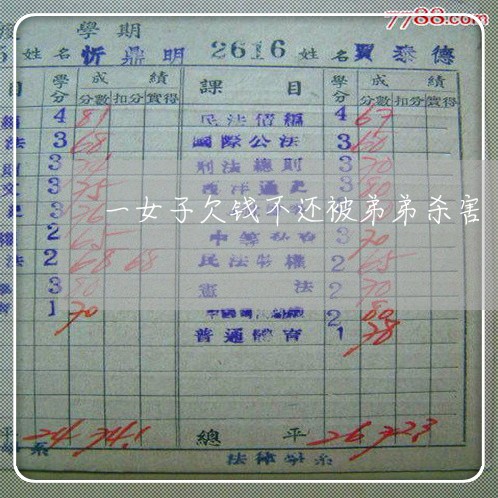 7788.com
學期
姓名 忻鼎明 2616 姓名 賈泰德
目 學分 成績 課目 學分 成績
分數 扣分 實得 分數 扣分 實得
4 81 民法債編 4 67
法 3 68 國際公法 3 60
3 刑法總則 3 70
3 75 西洋通史 3
3 76
一女子欠钱不还被弟弟杀害
2 65 3 70
法 2 68 68 民法物權 2 65
3 80 憲法 2 70
1 70 2 80
普通體育 1 78
平 24 74.1 總平 26 72.3
系 法律學系